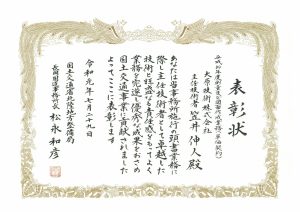 表彰状
平成三十年度
大原技術株式会社
主任技術者 笠井 伸人 殿
あなたは当事務所施行の頭書業務に
際し主任技術者として卓越した
技術と旺盛なる責任感をもってよく
業務を完遂し優秀な成果をおさめ
国土交通事業に貢献されました
よってここに表彰します
令和元年七月二十九日
国土交通省北陸地方整備局
長岡国道事務所長 松永 和彦